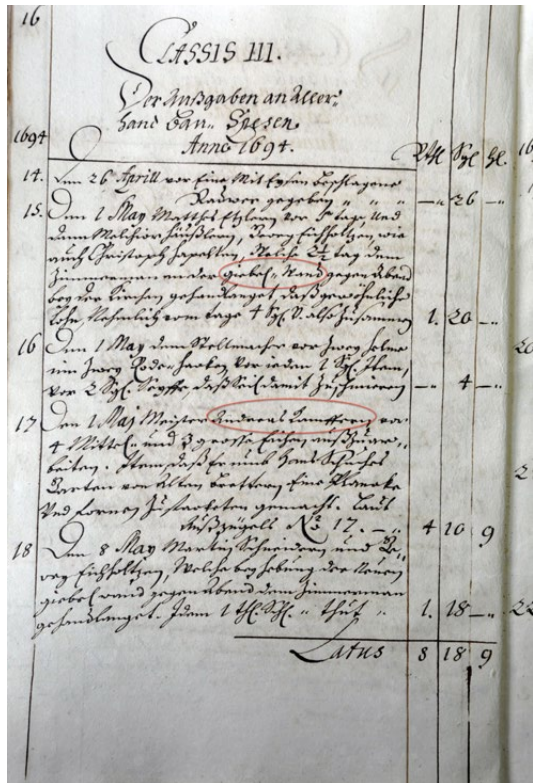 16
CLASSIS III.
Der Außgaben an Aller„
hand Bau„ Spesen
Anno 1694.
1694 Rthl Sgl hl.
14. Den 26 Aprill vor Eine Mit Eysen beschlagene
Radwer gegeben „ „ „ — 26 —
15. Den 1 May Matthes vor 5 tage Und
dann Melchior Häußlern, Georg Eichholtzen, wie
auch Christoph, Welche 2½ tag dem
Zimmerman an der giebel„ Wand gegen Abend
bey der Kirchen gehandlanget, daß gewöhnliche
Lohn, Nehmlich vom tage 4 Sgl. d. also Zusammen 1. 20 —
16 Den 1 May dem Stellmacher vor Zwey
in Zwey Rode hacken, vor ieden 1 Sgl. Item,
vor 2 Sgl. Seyffe, daß Seil damit Zuschmieren — 4 —
17 Den 1 Maj Meister Andreas Kampffern von
4 Mittel„ und 3 grosse Eichen außZuar„
beiten. Item, daß Er umb Hans
Garten von Alten Brettern Eine Plancke
Und fornen Zustacketen gemacht. Laut
Außzügels No. 17. — „ 4 10 9
18 Den 8 May Martin Schneidern und Ge„
org Eichholtzen, Welche bey hebung der Neuen
giebel wand gegen Abend dem Zimmerman
gehandlanget. Idem 1 thl. „ thut „ 1. 18 —
Latus 8 18 9